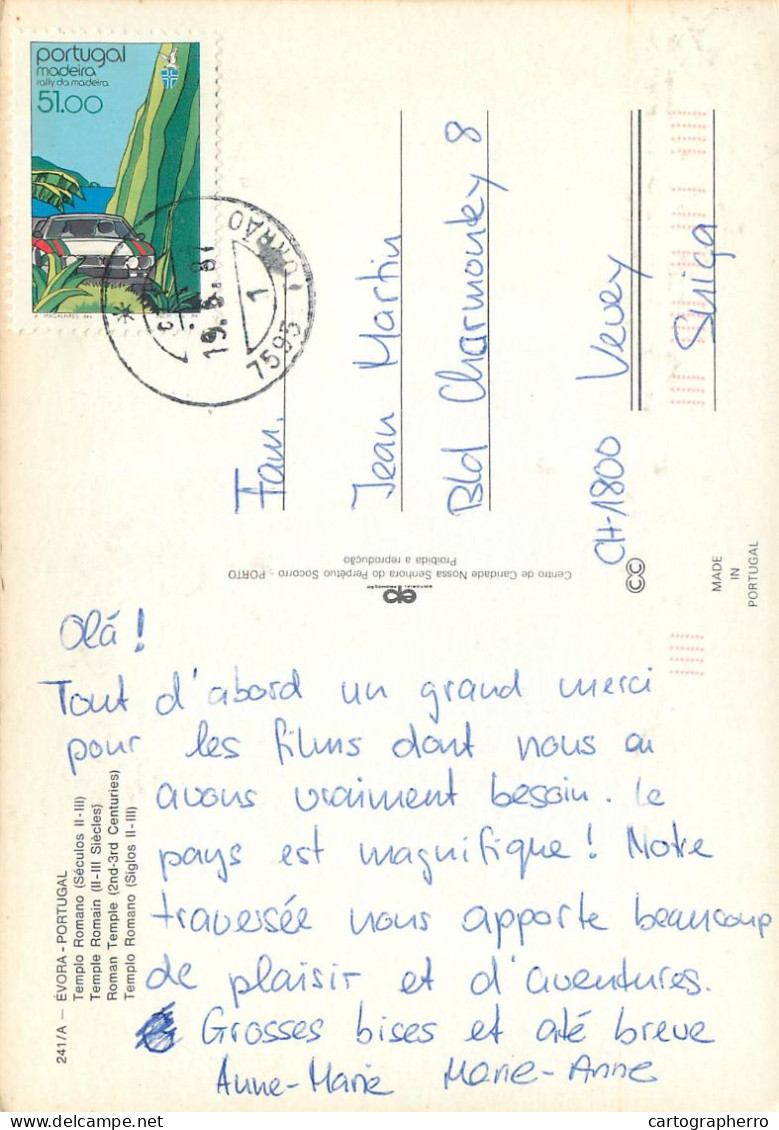 portugal
madeira
rally da madeira
51.00
19.5.87
1
7595
Fam.
Jean Martin
Bld Charmontey 8
CH-1800 Vevey
Suiça
Centro de Caridade Nossa Senhora do Perpétuo Socorro - PORTO
Proibida a reprodução
MADE
IN
PORTUGAL
241/A — ÉVORA - PORTUGAL
Templo Romano (Séculos II-III)
Temple Romain (II-III Siècles)
Roman Temple (2nd-3rd Centuries)
Templo Romano (Siglos II-III)
Olá!
Tout d'abord un grand merci
pour les films dont nous en
avons vraiment besoin. Le
pays est magnifique! Notre
traversée nous apporte beaucoup
de plaisir et d'aventures.
Grosses bises et até breve
Anne-Marie Marie-Anne
cartographerro